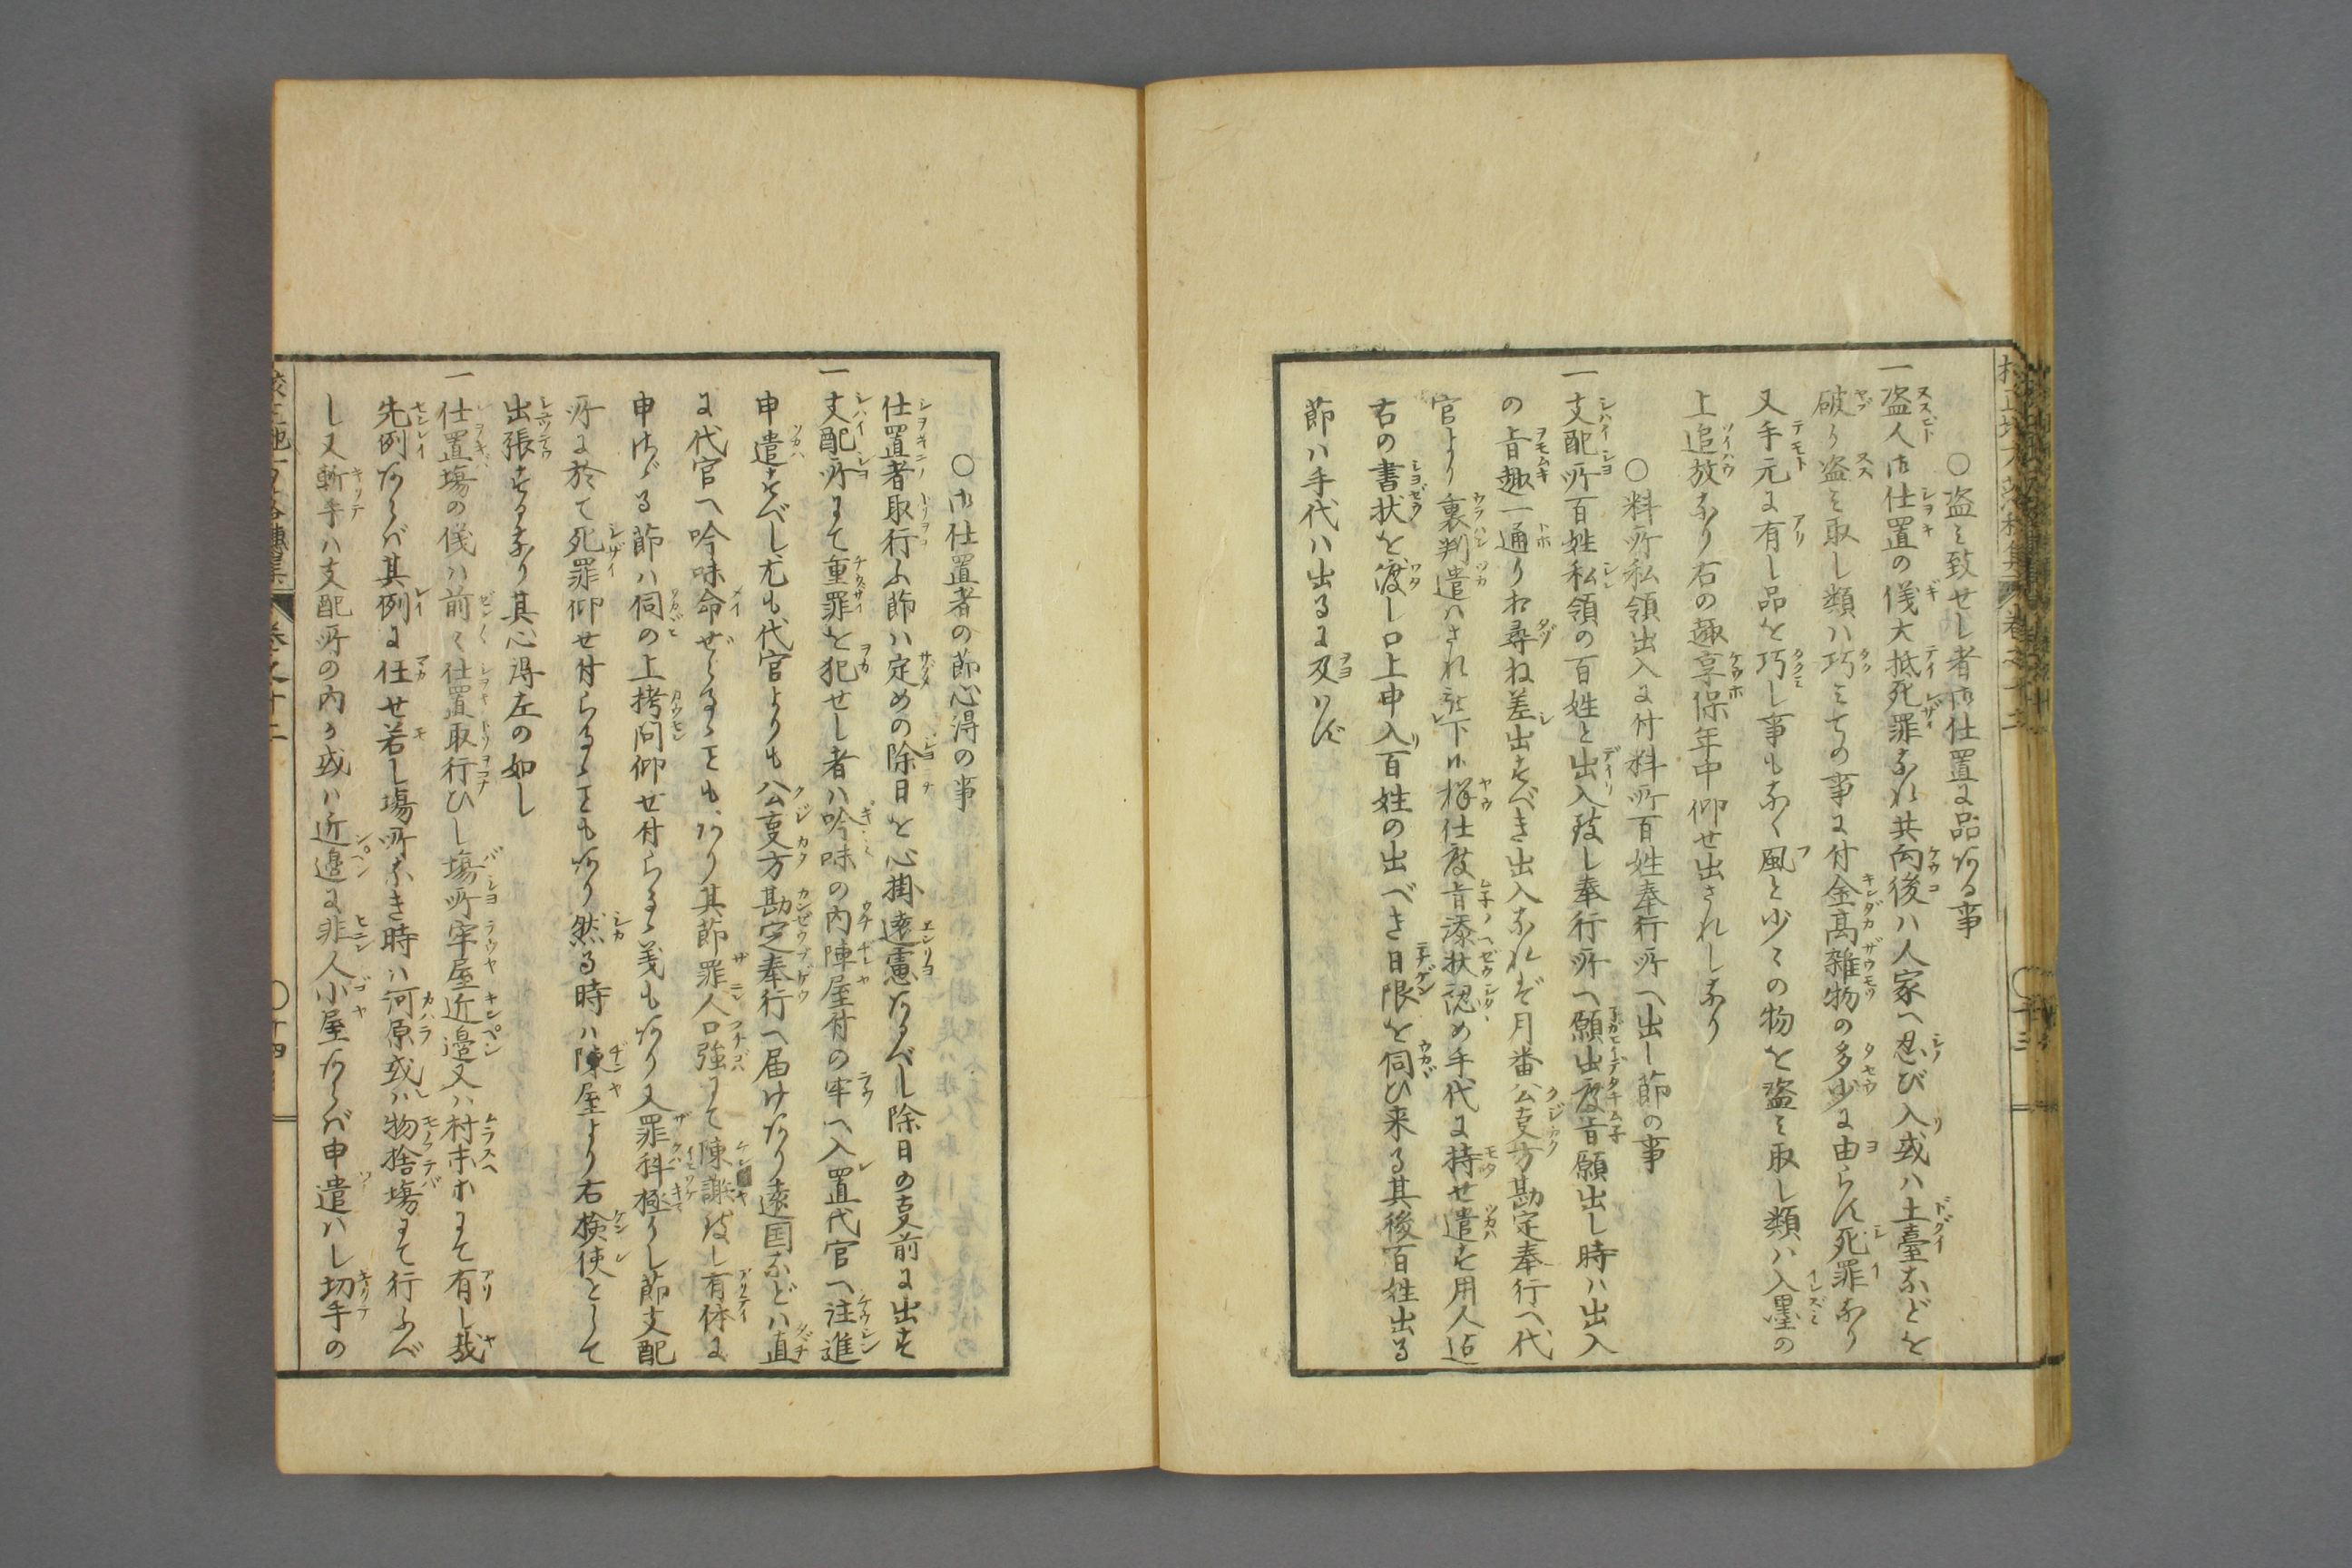 ○盗ミ致せし者御仕置に品ある事
一盗人御仕置の儀大抵死罪なれ共向後ハ人家へ忍び入或ハ土臺などを
破り盗ミ取し類ハ巧ミての事に付金高雑物の多少に由らず死罪なり
又手元に有し品を巧し事もなく風と少々の物を盗ミ取し類ハ入墨の
上追放なり右の趣享保年中仰せ出されしなり
○料所私領出入に付料所百姓奉行所へ出し節の事
一支配所百姓私領の百姓と出入致し奉行所へ願出度旨願出し時ハ出入
の旨趣一通り相尋ね差出すべき出入なれば月番公事方勘定奉行へ代
官より裏判遣ハされ下候様仕度旨添状認め手代に持せ遣す用人迠
右の書状を渡し口上申入百姓の出べき日限を伺ひ来る其後百姓出る
節ハ手代ハ出るに及ハず
○御仕置者の節心得の事
仕置者取行ふ節ハ定めの除日を心掛遠慮あるべし除日の事前に出す
一支配所にて重罪を犯せし者ハ吟味の内陣屋付の牢へ入置代官へ注進
申遣すべし尤も代官よりも公事方勘定奉行へ届けあり遠国などハ直
に代官へ吟味命ぜらるゝこともあり其節罪人口強にて陳謝致し有体に
申さゞる節ハ伺の上拷問仰せ付らるゝ義もあり又罪科極りし節支配
所に於て死罪仰せ付らるゝこともあり然る時ハ陳屋より右検使として
出張するなり其心得左の如し
一仕置場の儀ハ前々仕置取行ひし場所牢屋近邉又ハ村末ホにて有し哉
先例あらバ其例に任せ若し場所なき時ハ河原或ハ物捨場にて行ふべ
し又斬手ハ支配所の内か或ハ近邉に非人小屋あらバ申遣ハし切手の